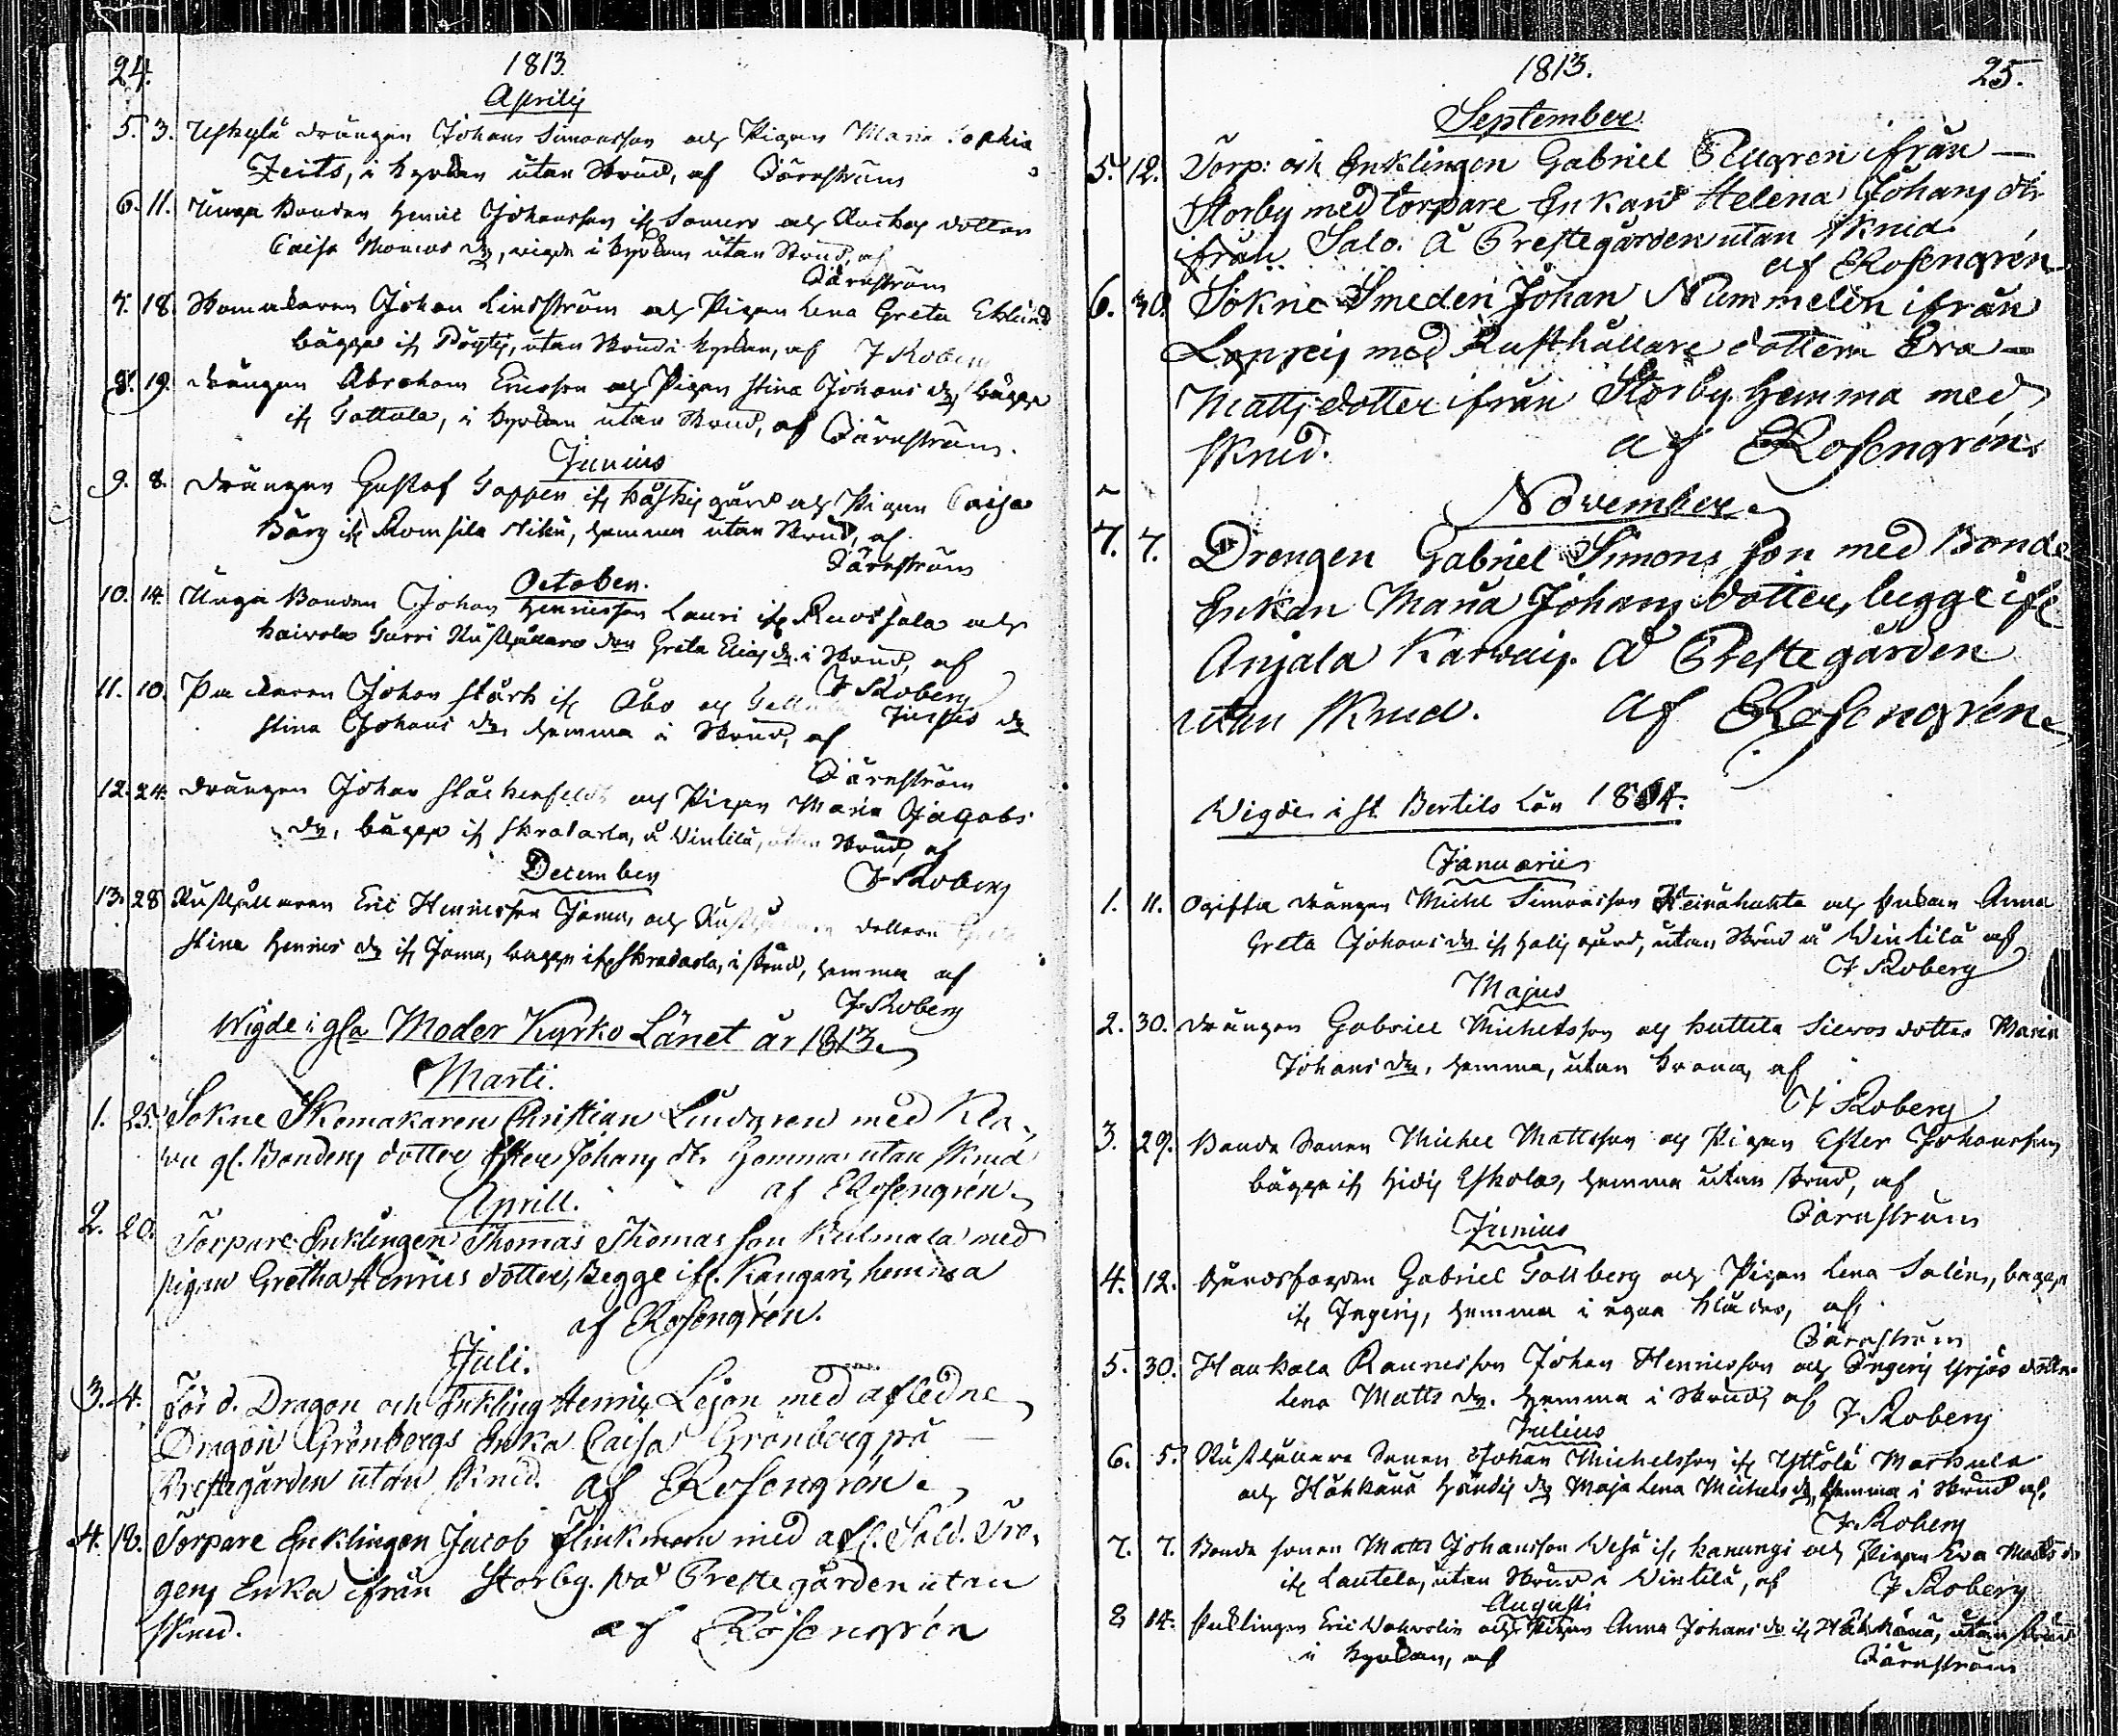 24.
1813.
Aprilij
5. 3. Uskylä Drängen Johan Simonsson och Pigan Maria Sophia
Zeits, i kyrkan utan Skrud, af Därnström
6. 11. Unga Bonden Henric Johansson ifr Somero och dotter
Caisa Thomas dr, vigde i kyrkan utan Skrud, af
Därnström
7. 18. Skomakaren Johan Lindström och Pigan Lena Greta Eklund
bägge ifr Pöytis, utan Skrud i kyrkan, af J Roberg
8. 19. Drängen Abraham Ericsson och Pigan Stina Johans dr, bägge
ifr Tattula, i kyrkan utan Skrud, af Därnström.
Junius
9. 8. Drängen Gustaf Toppen ifr gård och Pigan Caisa
Bärg ifr hemma utan Skrud, af
Därnström
October.
10. 14. Unga Bonden Johan Henricsson Lauri ifr Ruossala och
Rusthållare dr Greta Erics dr. i Skrud, af
J Roberg
11. 10. Johan Stark ifr Åbo och
Stina Johans dr, hemma i Skrud, af
Därnström
12. 24. Drängen Johan och Pigan Maria Jacobs
dr, bägge ifr Skradarla, å Vintilä, utan Skrud, af
J Roberg
December
13. 28 Rusthållaren Eric Henricsson Jäma, och dottern Greta
Stina Henrics dr ifr Jäma, bägge ifr Skradarla, i skrud, hemma af
J Roberg
Wigde i gla Moder Kyrko Länet år 1813.
Marti.
1. 25. Sokne Skomakaren Christian Lindgren med
gl. Bondens dotter Ester Johans dr hemma utan skrud
af E Rosengrén.
Aprill.
2. 20. Torpare Enklingen Thomas Thomas son Kulmala med
pigan Gretha Henrics dotter, Begge ifr. Kangaris hemma
af E Rosengrén.
Juli.
3. 4. För d. Dragon och Enkling Henric Lejon med afledne
Dragon Grönbergs Enka Caisa Grönberg på
Prestegården utan skrud. af E Rosengrén.
4. 18. Torpare Enklingen Jacob Flinkman med afl. Sold. Tro-
gens Enka ifrån Storby. på Prestegården utan
skrud. af E Rosengrén
1813.
25.
September
5. 12. Torp: och Enklingen Gabriel Ellgren ifrån
Storby med torpare Enkan Helena Johans dtr
ifrån Salo. Å Prestegården utan skrud.
af E Rosengrén
6. 30. Sokne Smeden Johan Nummelin ifrån
med Rusthållare dottern Eva
Matts dotter ifrån Storby. hemma med
skrud. af E Rosengrén.
November
7. 7. Drengen Gabriel Simons son med Bonde
Enkan Maria Johans dotter, begge ifr
Anjala Karvais. Å Prestegården
utan skrud. af E Rosengrén.
Wigde i St. Bertils Län 1814.
Januarii
1. 11. Ogifta drängen Michel Simonsson Heinähukta och Enkan Anna
Greta Johans dr ifr gård, utan Skrud å Vintilä af
J Roberg
Majus
2. 30. Drängen Gabriel Michelsson och Huttila dotter Maria
Johans dr, hemma, utan krona, af
J Roberg
3. 29. Bonde Sonen Michel Mattsson och Pigan Ester Johansson
bägge ifr Eskola, hemma utan skrud, af
Därnström
Junius
4. 12. Gårdsfogden Gabriel Tallberg och Pigan Lena Salin, bägge
ifr Ingeris, hemma i egna kläder, af
Därnström
5. 30. Haukala Johan Henricsson och Ingeris Yrjös dotter
Lena Matts dr. hemma i Skrud, af J Roberg
Julius
6. 5. Rusthållare Sonen Johan Michelsson ifr Yttölä Markula
och Härkänä Händis dr Maja Lena Michels dr, hemma i Skrud af
J Roberg
7. 7. Bonde sonen Matts Johansson ifr Kanungi och Pigan Eva Matts dr
ifr Lautela, utan Skrud i Vintilä, af J Roberg
Augusti
8 14. Enklingen Eric och Pigan Anna Johans dr ifr utan Skrud
i kyrkan, af Därnström